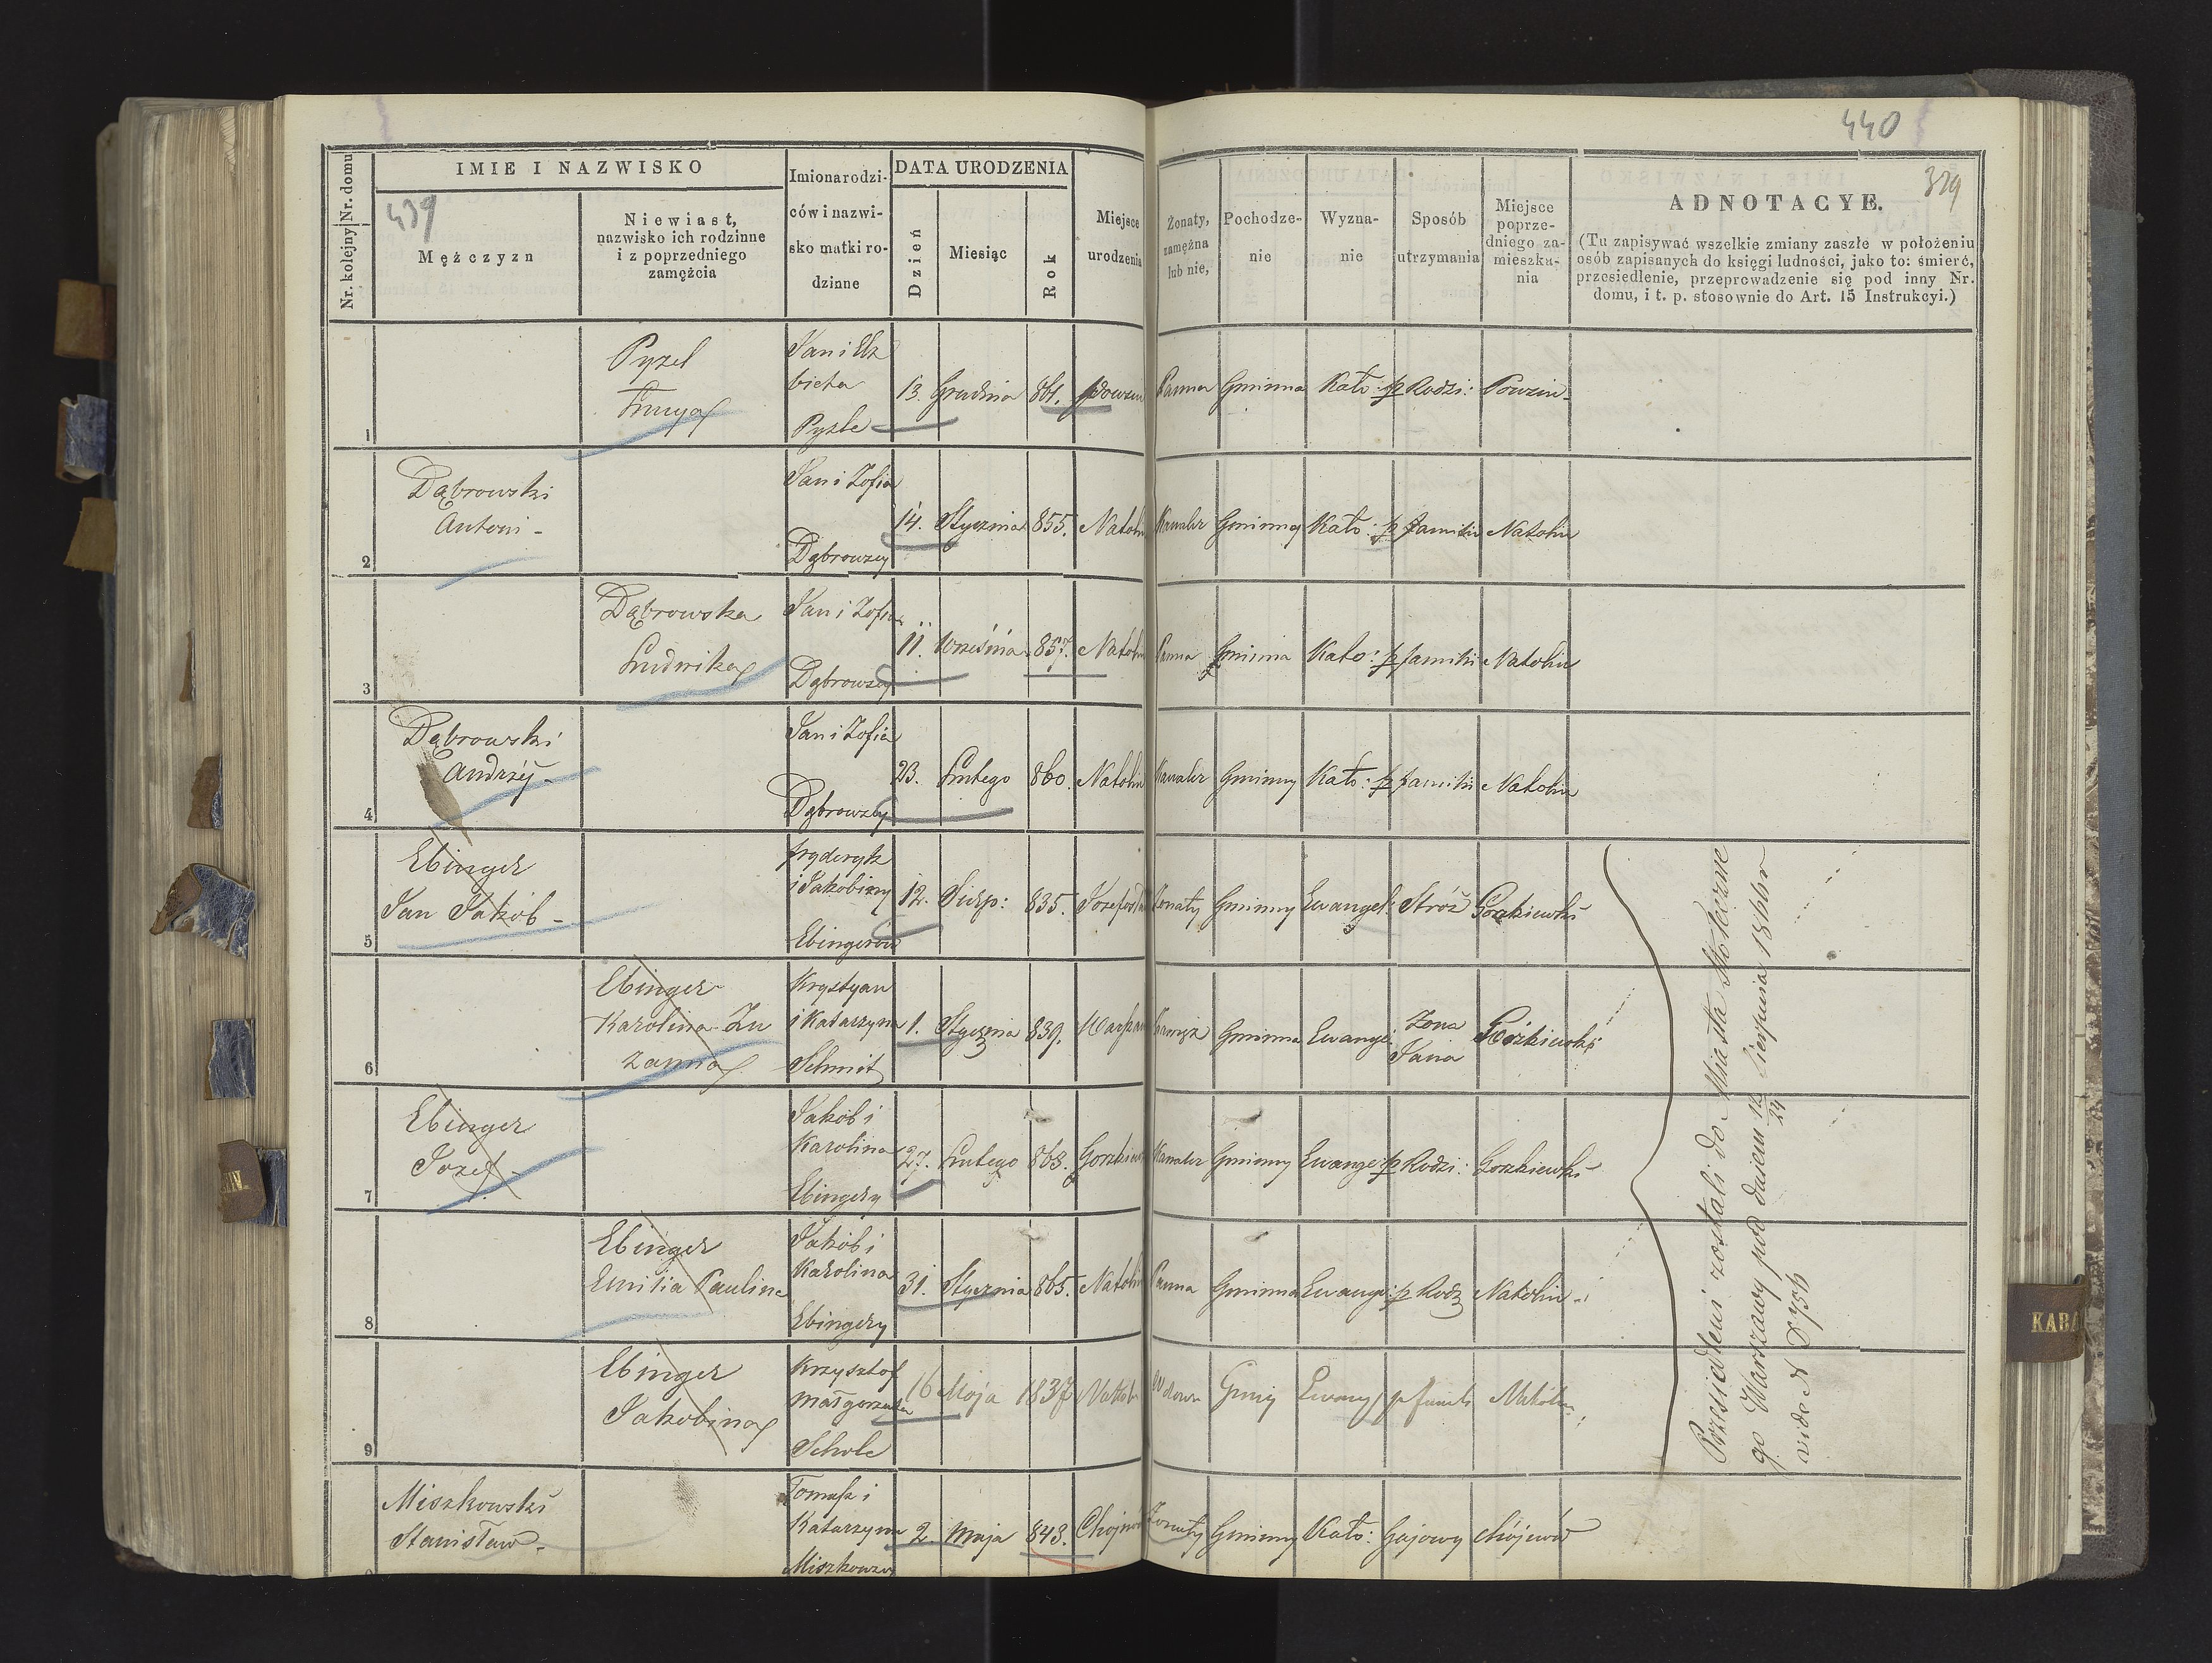 440
439
379
Nr. kolejny Nr. domu
IMIE I NAZWISKO
Mężczyzn
Niewiast,
nazwisko ich rodzinne
i z poprzedniego
zamęźcia
Imiona rodzi-
ców i nazwi-
sko matki ro-
dzinne
DATA URODZENIA
Dzień
Miesiąc
Rok
Miejsce
urodzenia
Żonaty,
zamężna
lub nie,
Pochodze-
nie
Wyzna-
nie
Sposób
utrzymania
Miejsce
poprze-
dniego za-
mieszka-
nia
ADNOTACYE.
(Tu zapisywać wszelkie zmiany zaszłe w położeniu
osób zapisanych do księgi ludności, jako to: śmierć,
przesiedlenie, przeprowadzenie się pod inny Nr.
domu, i t. p. stosownie do Art. 15 Instrukcyi.)
1
Pyzel
Jan i Elz
bieta
Pyzle
13. Grudnia 861. Powzin Panna Gminna Kato: p Rodzi: Powzin
2
Dąbrowski
Antoni
Jan i Zofia
Dąbrowscy
14. Stycznia 855. Natolin Kawaler Gminny Kato: p familii Natolin
3
Dąbrowska
Ludwika
Jan i Zofia
Dąbrowscy
11. Września 857. Natolin Panna Gminna Kato: p familii Natolin
4
Dąbrowski
Andrzéj
Jan i Zofia
Dąbrowscy
23. Lutego 860. Natolin Kawaler Gminny Kato: p familii Natolin
5
Ebinger
Jan Jakób
Fryderyk
i Jakobiny
Ebingerów
12. Sierp: 835. Żonaty Gminny Ewangel: Stróż
6
Ebinger
Karolina Zu
zanna
Krystyan
i Katarzyna
Schmit
1. Stycznia 839. Gminna Ewange: Żona
Jana
7
Ebinger
Jozef
Jakób i
Karolina
Ebingery
27. Lutego 863. Kawaler Gminny Ewange: p Rodzi:
8
Ebinger
Emilia Paulina
Jakób i
Karolina
Ebingery
31. Stycznia 865. Natolin Panna Gminna Ewange: p Rodz Natolin
9
Ebinger
Jakobina
Krzysztof
Małgorzata
Scholc
16 Maja 1837 Natolin Wdowa p famili Natolin
Przesiedleni zostali do Miasta Stołeczne
go Warszawy pod dniem 12/24 Sierpnia 1866 r
vide N D 756
Miszkowski
Stanisław
Tomasz i
Katarzyna
Miszkowscy
2. Maja 843. Chojnów Żonaty Gminny Kato: Gajowy Chojnów
KABA